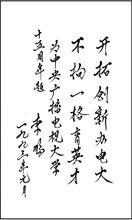 开拓创新办电大
不拘一格育英才
为中央广播电视大学
十五周年题
李鹏
一九九三年元月